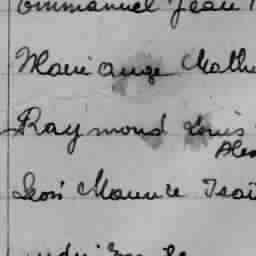 Emmanuel Jean
Marie Ange Math
Raymond Louis
Alex
Léon Maurice Isaï